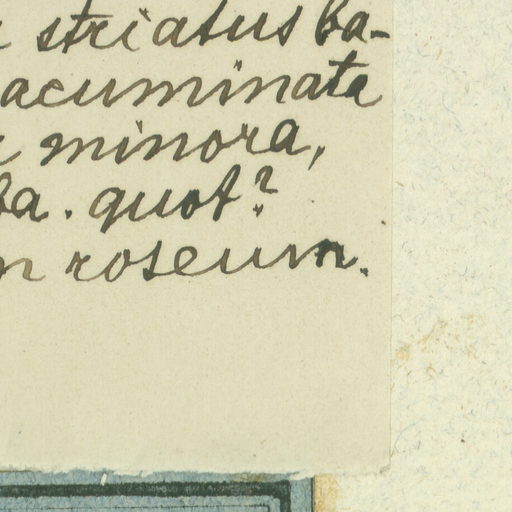 striatus ba-
acuminata
minora,
ba. quot?
n roseum.